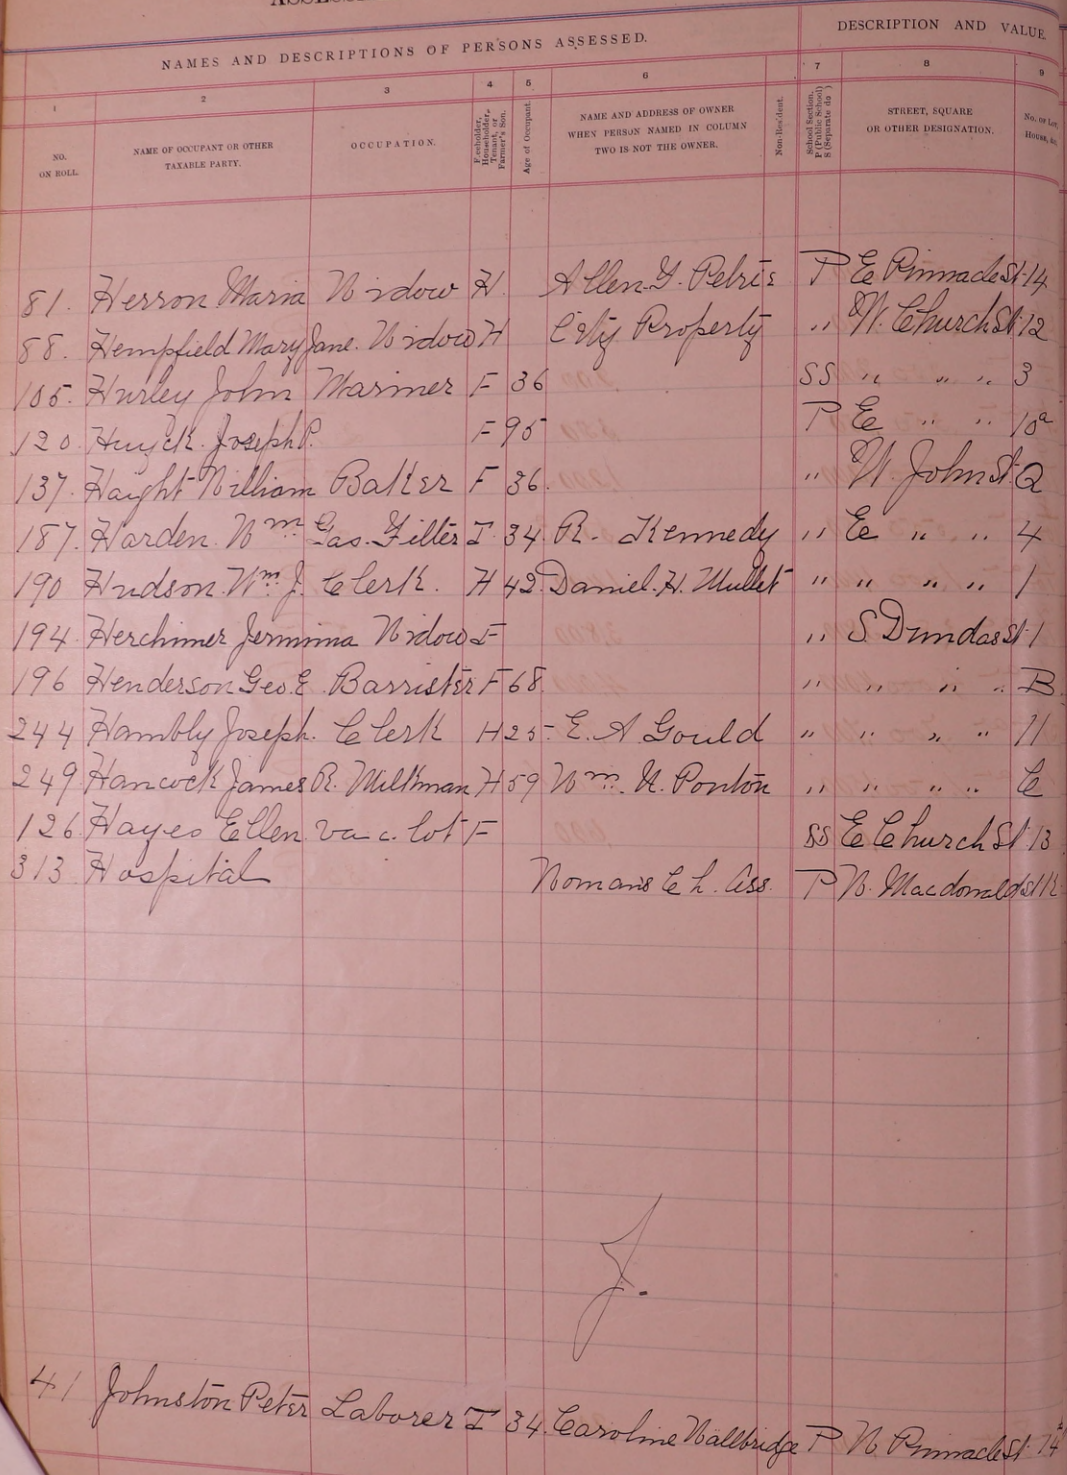 NAMES AND DESCRIPTIONS OF PERSONS ASSESSED.
DESCRIPTION AND VALUE.
1 2 3 4 5 6 7 8 9
NO. ON ROLL.
NAME OF OCCUPANT OR OTHER TAXABLE PARTY.
OCCUPATION.
Freeholder, Householder, Tenant, or Farmer's Son.
Age of Occupant.
NAME AND ADDRESS OF OWNER WHEN PERSON NAMED IN COLUMN TWO IS NOT THE OWNER.
Non-Resident.
School Section, P (Public School) S (Separate do )
STREET, SQUARE OR OTHER DESIGNATION.
No. of Lot, House, &c.
81. Herron Maria Widow H. Allen G. Petrie P E Pinnacle St. 14
88. Hempfield Mary Jane. Widow H City Property " W. Church St. 12
105. Hurley John Mariner F 36 SS " " " 3
120. Huyck. Joseph P. F 95 P E " " 10a
137. Haight William Baker F 36. " W. John St. 2
187. Harden. Wm Gas. Fitter T 34 R. Kennedy " E " " 4
190 Hudson. Wm. J. Clerk. H 42 Daniel. H. Mullet " " " " 1
194 Herchimer Jemmima Widow F " S. Dundas St. 1
196 Henderson Geo. E Barrister F 68 " " " " B
244 Hambly Joseph. Clerk H 25 E. A Gould " " " " 11
249 Hancock James R. Milkman H 59 Wm. N. Ponton " " " " C
126 Hayes Ellen vac. lot F SS E Church St 13
313 Hospital Womans Ch. Ass. P N. Macdonald St
J.
41 Johnston Peter Laborer T 34. Caroline Wallbridge P W. Pinnacle St. 14